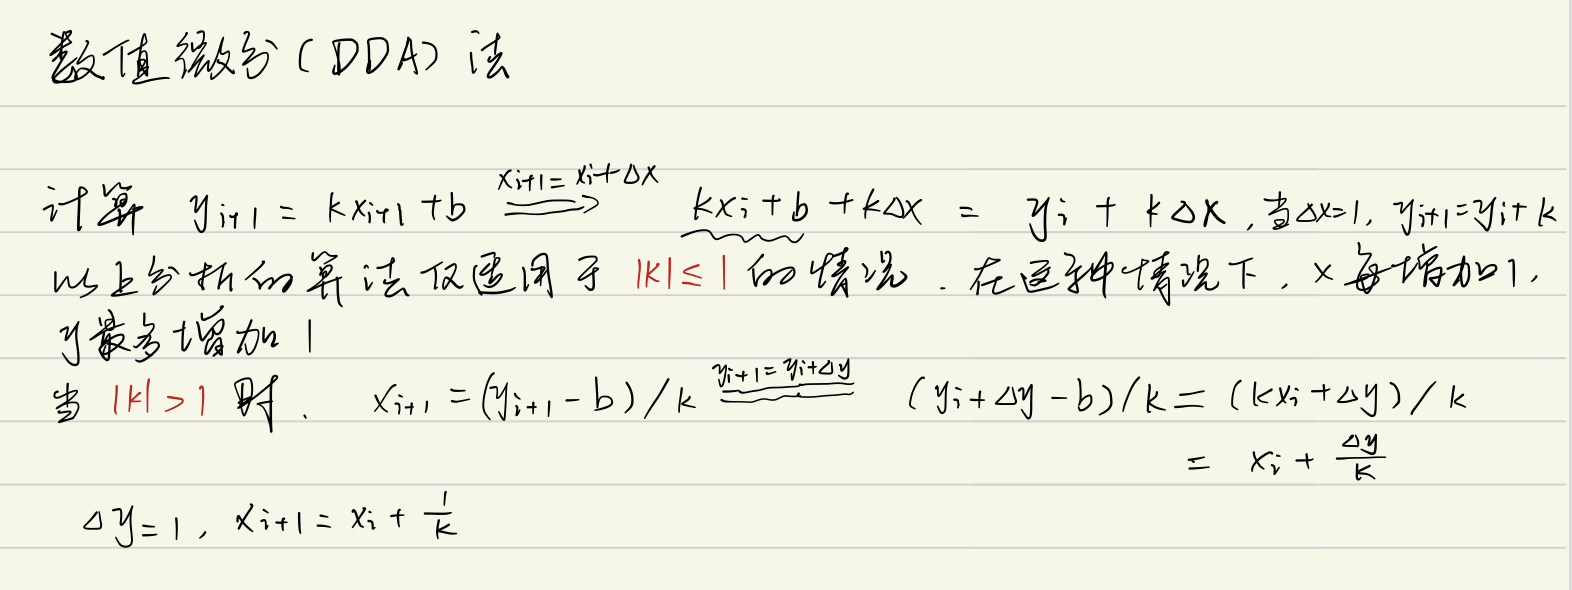 数值微分(DDA)法
计算 y_{i+1} = kx_{i+1}+b \xRightarrow{x_{i+1}=x_i+Δx} kx_i+b+kΔx = y_i + kΔx,当Δx=1, y_{i+1}=y_i+k
以上分析的算法仅适用于 |k|≤1 的情况.在这种情况下,x每增加1,
y最多增加1
当 |k|>1 时. x_{i+1} = (y_{i+1}-b)/k \xlongequal{y_{i+1}=y_i+Δy} (y_i+Δy-b)/k = (kx_i+Δy)/k
= x_i + \frac{Δy}{k}
Δy=1, x_{i+1} = x_i + \frac{1}{k}